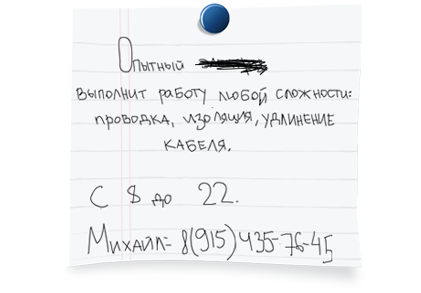 Опытный
выполнит работу любой сложности:
проводка, изоляция, удлинение
кабеля.
С 8 до 22.
Михаил= 8(915)435-76-45